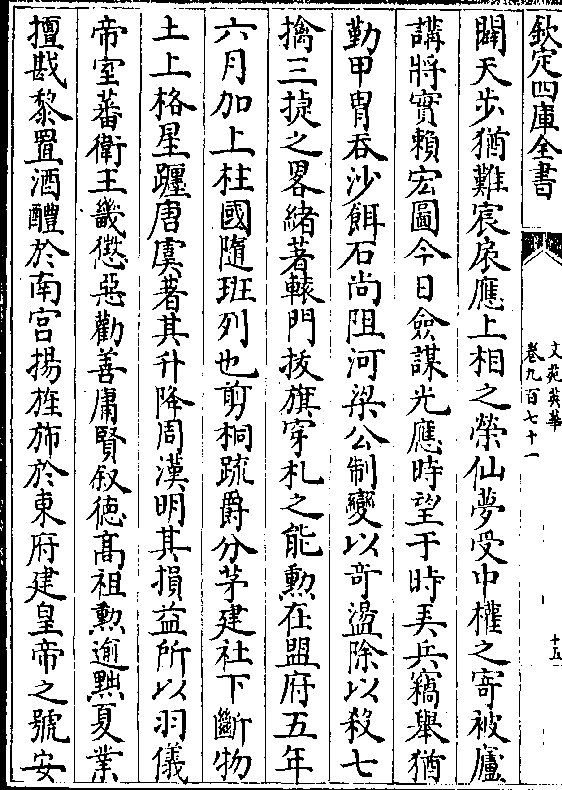 欽定四庫全書
文苑英華
卷九百七十一
十五
闢天步猶難宸扆應上相之榮仙夢受中權之寄被廬
講將實賴宏圖今日僉謀光應時望于時美兵竊舉猶
勤甲胄吞沙餌石尚阻河梁公制變以奇盪除以殺七
擒三㨗之畧緒著轅門抜旗穿札之能勲在盟府五年
六月加上柱國隨班列也剪桐疏爵分茅建社下斷物
土上格星躔唐虞著其升降周漢明其損益所以羽儀
帝室蕃衛王畿懲惡勸善庸賢叙徳髙祖勲逾黜夏業
擅戡黎置酒醴於南宮揚旌斾於東府建皇帝之號安